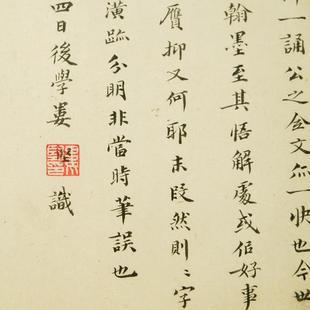 一誦公之全文亦一快也今世
翰墨至其悟解處或但好事
贋抑又何耶末段然則〻字
潢跡分明非當時筆誤也
四日後學婁堅識